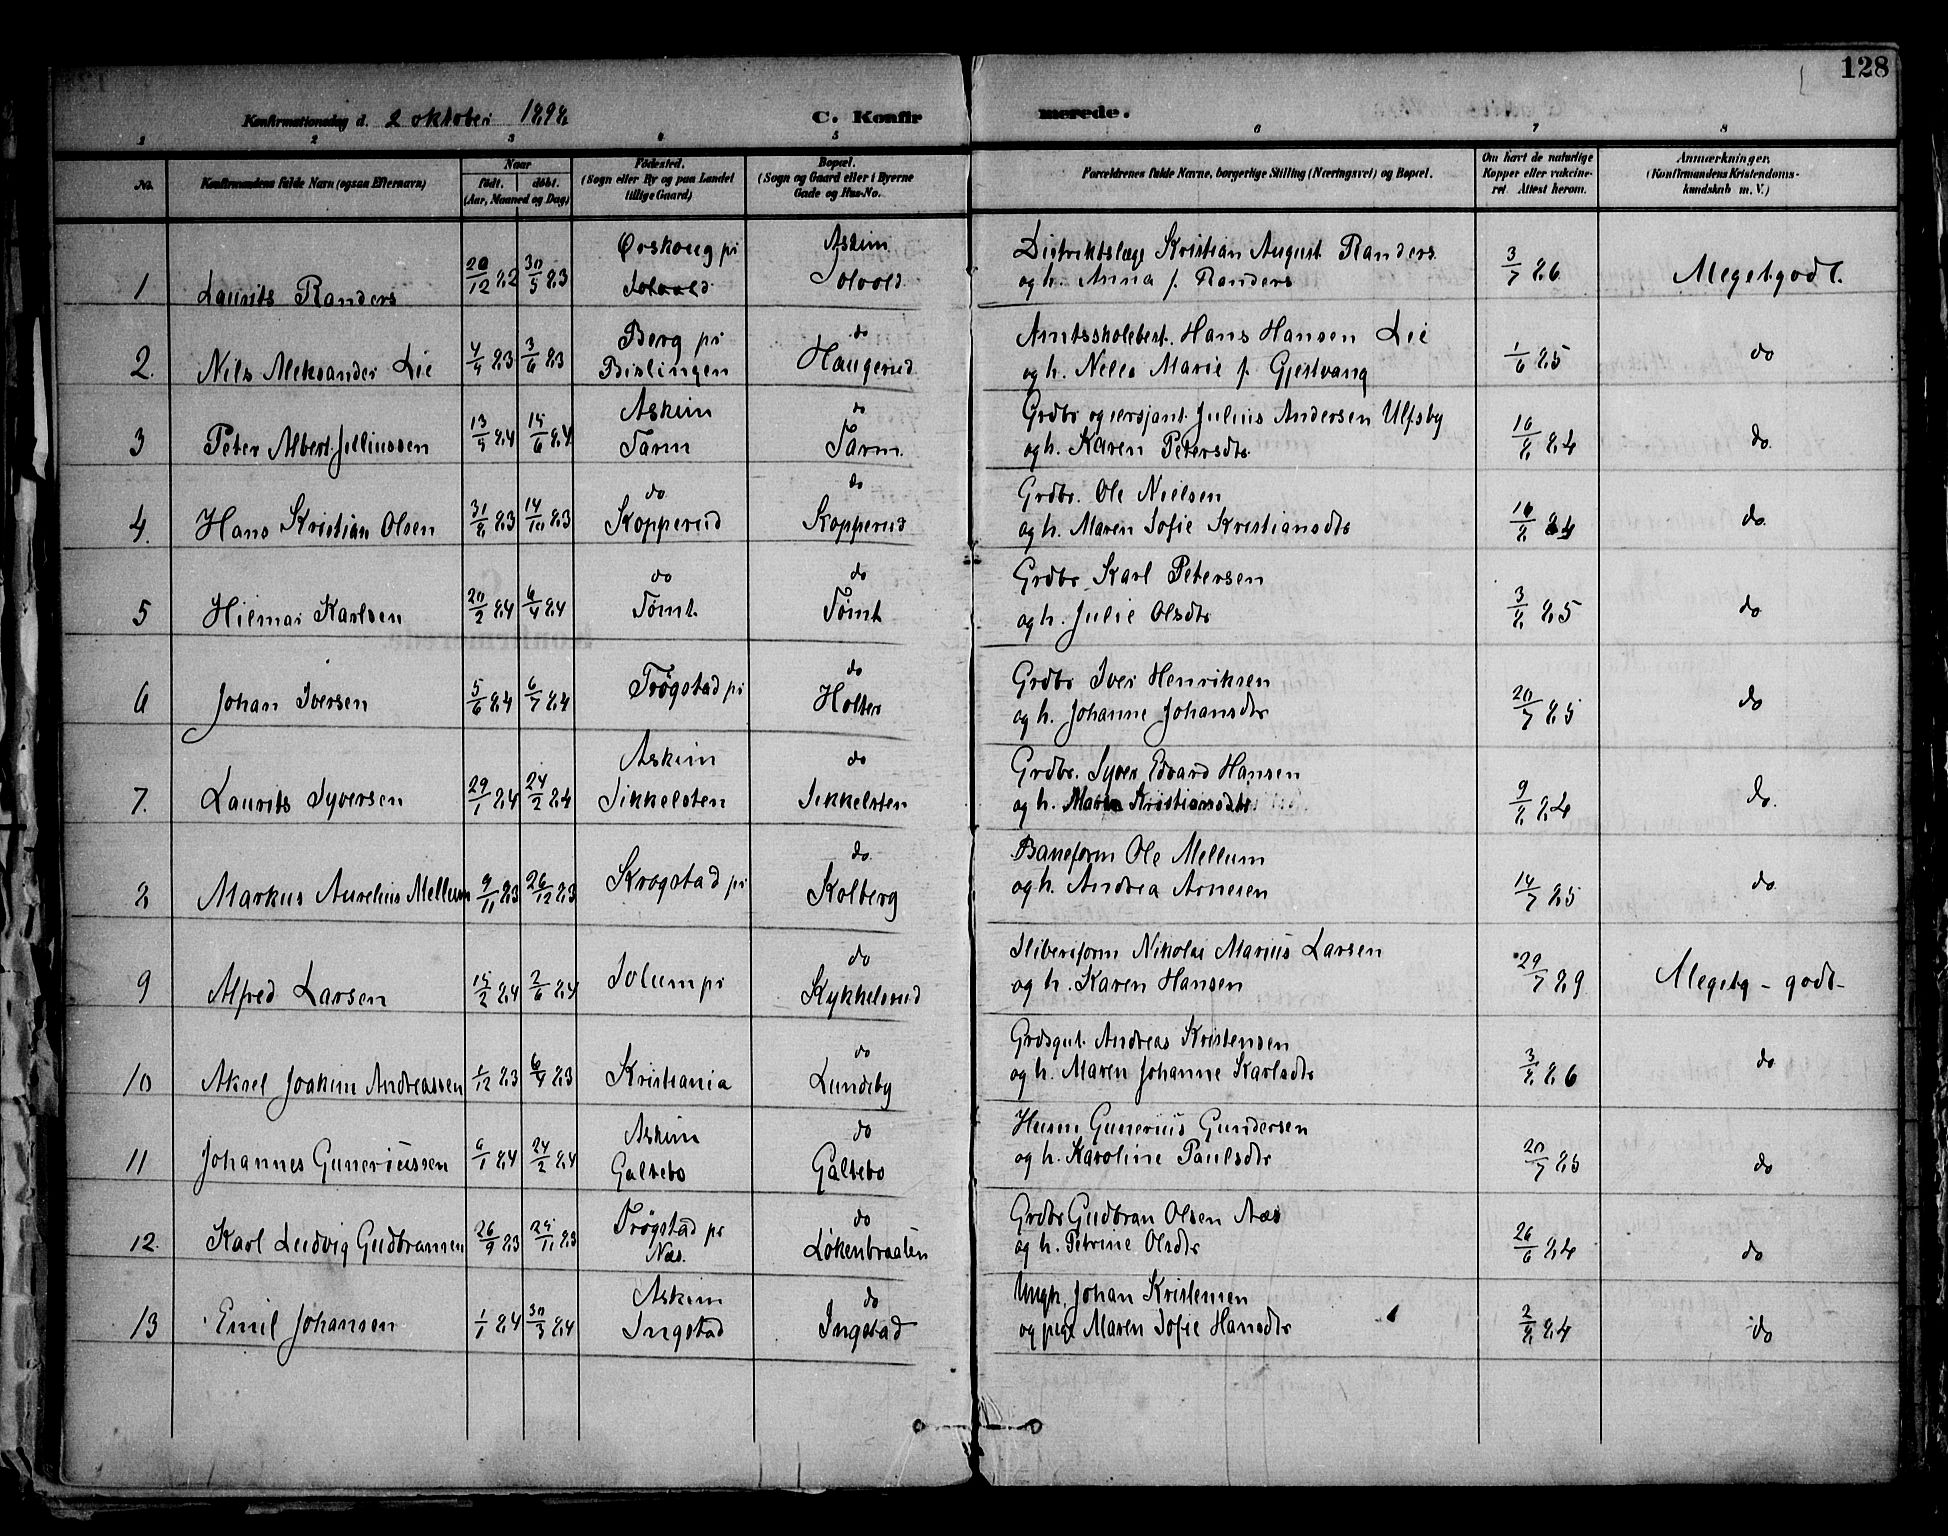 128
Konfirmationsdag d. 2 oktober 1898
C. Konfir merede.
1 2 3 4 5 6 7 8
No. Konfirmandens fulde Navn (ogsaa Efternavn) Naar født. døbt. (Aar, Maaned og Dag) Fødested. (Sogn eller By og paa Landet tillige Gaard) Bopæl. (Sogn og Gaard eller i Byerne Gade og Hus-No. Forældrenes fulde Navne, borgerlige Stilling (Næringsvei) og Bopæl. Om havt de naturlige Kopper eller vakcineret. Attest herom. Anmærkninger, (Konfirmandens Kristendomskundskab m. V.)
Ørskoug pr Askim Distriktslæge Kristian August Randers
1 Laurits Randers 20/12 82 30/5 83 Solvold Solvold og h. Anna f. Randers 3/7 86 Megetgodt.
Berg pr do Amtsskolebest. Hans Hansen Lie
2. Nils Aleksander Lie 4/4 83 3/6 83 Bislingen Haugerud og h. Nelle Marie f. Gjestvang 1/6 85 do
Askim do Grdbr og sersjant Julius Andersen Ulfsby
3 Peter Albert Julliussen 13/5 84 15/6 84 Tarm Tarm og h. Karen Petersdtr 16/8 84 do.
do do Grdbr. Ole Nielsen
4. Hans Kristian Olsen 31/8 83 14/10 83 Kopperud Kopperud og h. Maren Sofie Kristiansdtr 16/8 84 do.
do do Grdbr Karl Petersen
5 Hilmar Karlsen 20/2 84 6/4 84 Tømt Tømt og h. Julie Olsdtr 3/8 85 do
do Grdbr Iver Henriksen
6 Johan Iversen 5/6 84 6/7 84 Trøgstad pr Holter og h. Johanne Johansdtr 20/7 85 do
Askim do Grdbr. Syver Edvard Hansen
7. Laurits Syversen 29/1 84 24/2 84 Sikkelsten Sikkelsten og h. Maren Kristiansdtr 9/8 84 do.
do. Baneform Ole Mellum
8 Markus Aurelius Mellum 9/11 83 26/12 83 Krogstad pr Kolberg og h. Andrea Arnesen 14/7 85 do
do Sliberiform Nikolai Marius Larsen
9 Alfred Larsen 15/2 84 2/6 84 Solum pr Kykkelsrud og h. Karen Hansen 29/7 89 Megetg - godt-
do Grdsgut. Andreas Kristensen
10 Aksel Joakim Andreassen 1/12 83 6/4 83 Kristiania Lundeby og h. Maren Johanne Karlsdtr 3/8 86 do
Askim do Husm Gunerius Gundersen
11 Johannes Guneriussen 6/1 84 24/2 84 Galtebo Galtebo og h. Karoline Paulsdtr 20/7 85 do
Trøgstad pr do Grdbr Gudbran Olsen Næs
12. Karl Ludvig Gudbransen 26/9 83 25/11 83 Næs. Løkenbraaten og h. Petrine Olsdtr 26/6 84 do
Askim do Ungk. Johan Kristensen
13 Emil Johansen 1/1 84 30/3 84 Ingstad Ingstad og pige Maren Sofie Hansdtr 2/8 84 do